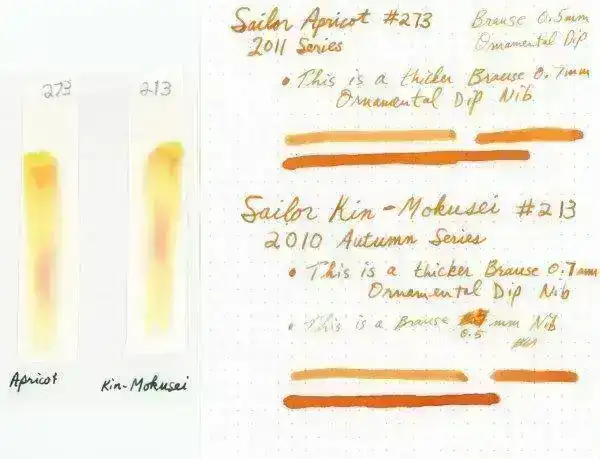 273
213
Apricot
Kin-Mokusei
Sailor Apricot #273
2011 Series
Brause 0.5mm
Ornamental Dip
• This is a thicker Brause 0.7mm
Ornamental Dip Nib
Sailor Kin-Mokusei #213
2010 Autumn Series
• This is a thicker Brause 0.7mm
Ornamental Dip Nib
• This is a Brause mm Nib
0.5